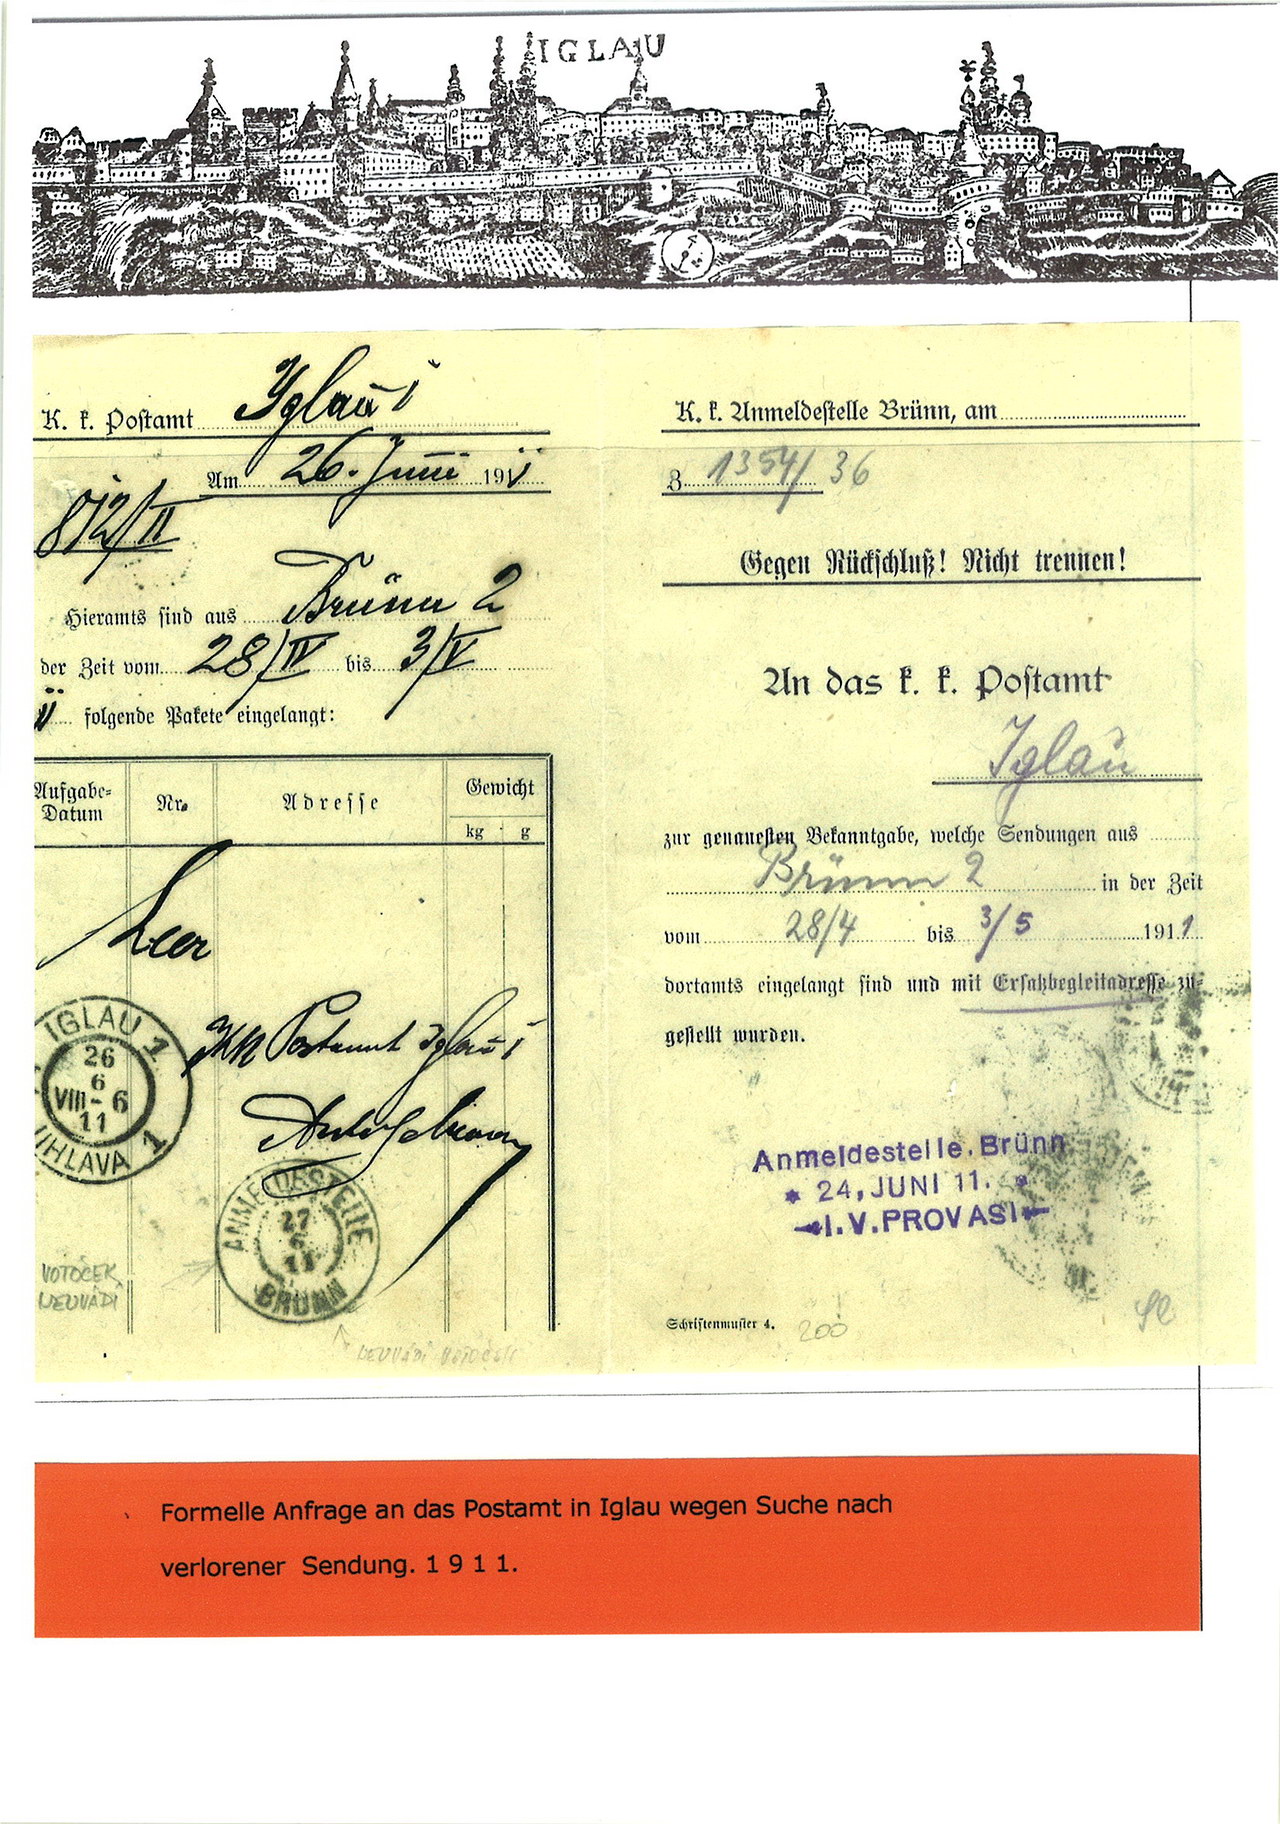 IGLAU
K. k. Postamt Iglau 1
Am 26. Juni 1911
812/II
Hieramts sind aus Brünn 2
der Zeit vom 28/IV bis 3/V
11 folgende Pakete eingelangt:
Aufgabe-Datum Nr. Adresse Gewicht
kg g
Leer
IGLAU 1
26
6
VIII-6
11
JIHLAVA 1
KK Postamt Iglau 1
ANMELDESTELLE
27
6
11
BRÜNN
VOTOČEK
NEUVÁDÍ
NEUVÁDÍ VOTOČEK
K. k. Anmeldestelle Brünn, am
Z. 1354/36
Gegen Rückschluß! Nicht trennen!
An das k. k. Postamt
Iglau
zur genauesten Bekanntgabe, welche Sendungen aus
Brünn 2 in der Zeit
vom 28/4 bis 3/5 1911
dortamts eingelangt sind und mit Ersatzbegleitadresse zu-
gestellt wurden.
Anmeldestelle Brünn
* 24. JUNI 11. *
I.V. PROVASI
Schriftenmuster 4. 200
Formelle Anfrage an das Postamt in Iglau wegen Suche nach
verlorener Sendung. 1 9 1 1.